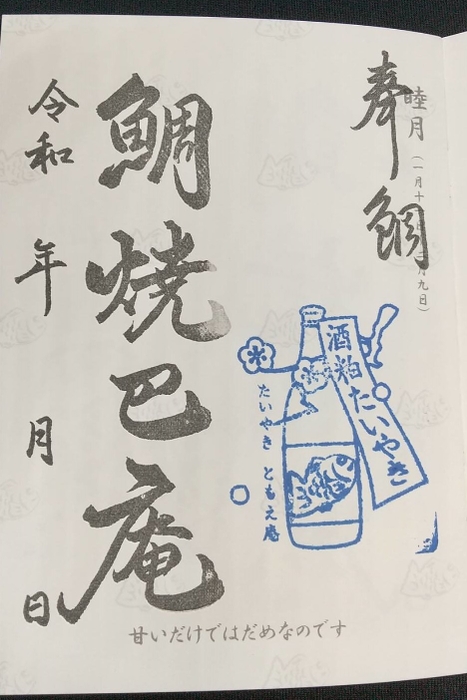 睦月(一月十 月九日)
奉鯛
酒粕たいやき
たいやき ともえ庵
鯛焼巴庵
令和 年 月 日
甘いだけではだめなのです